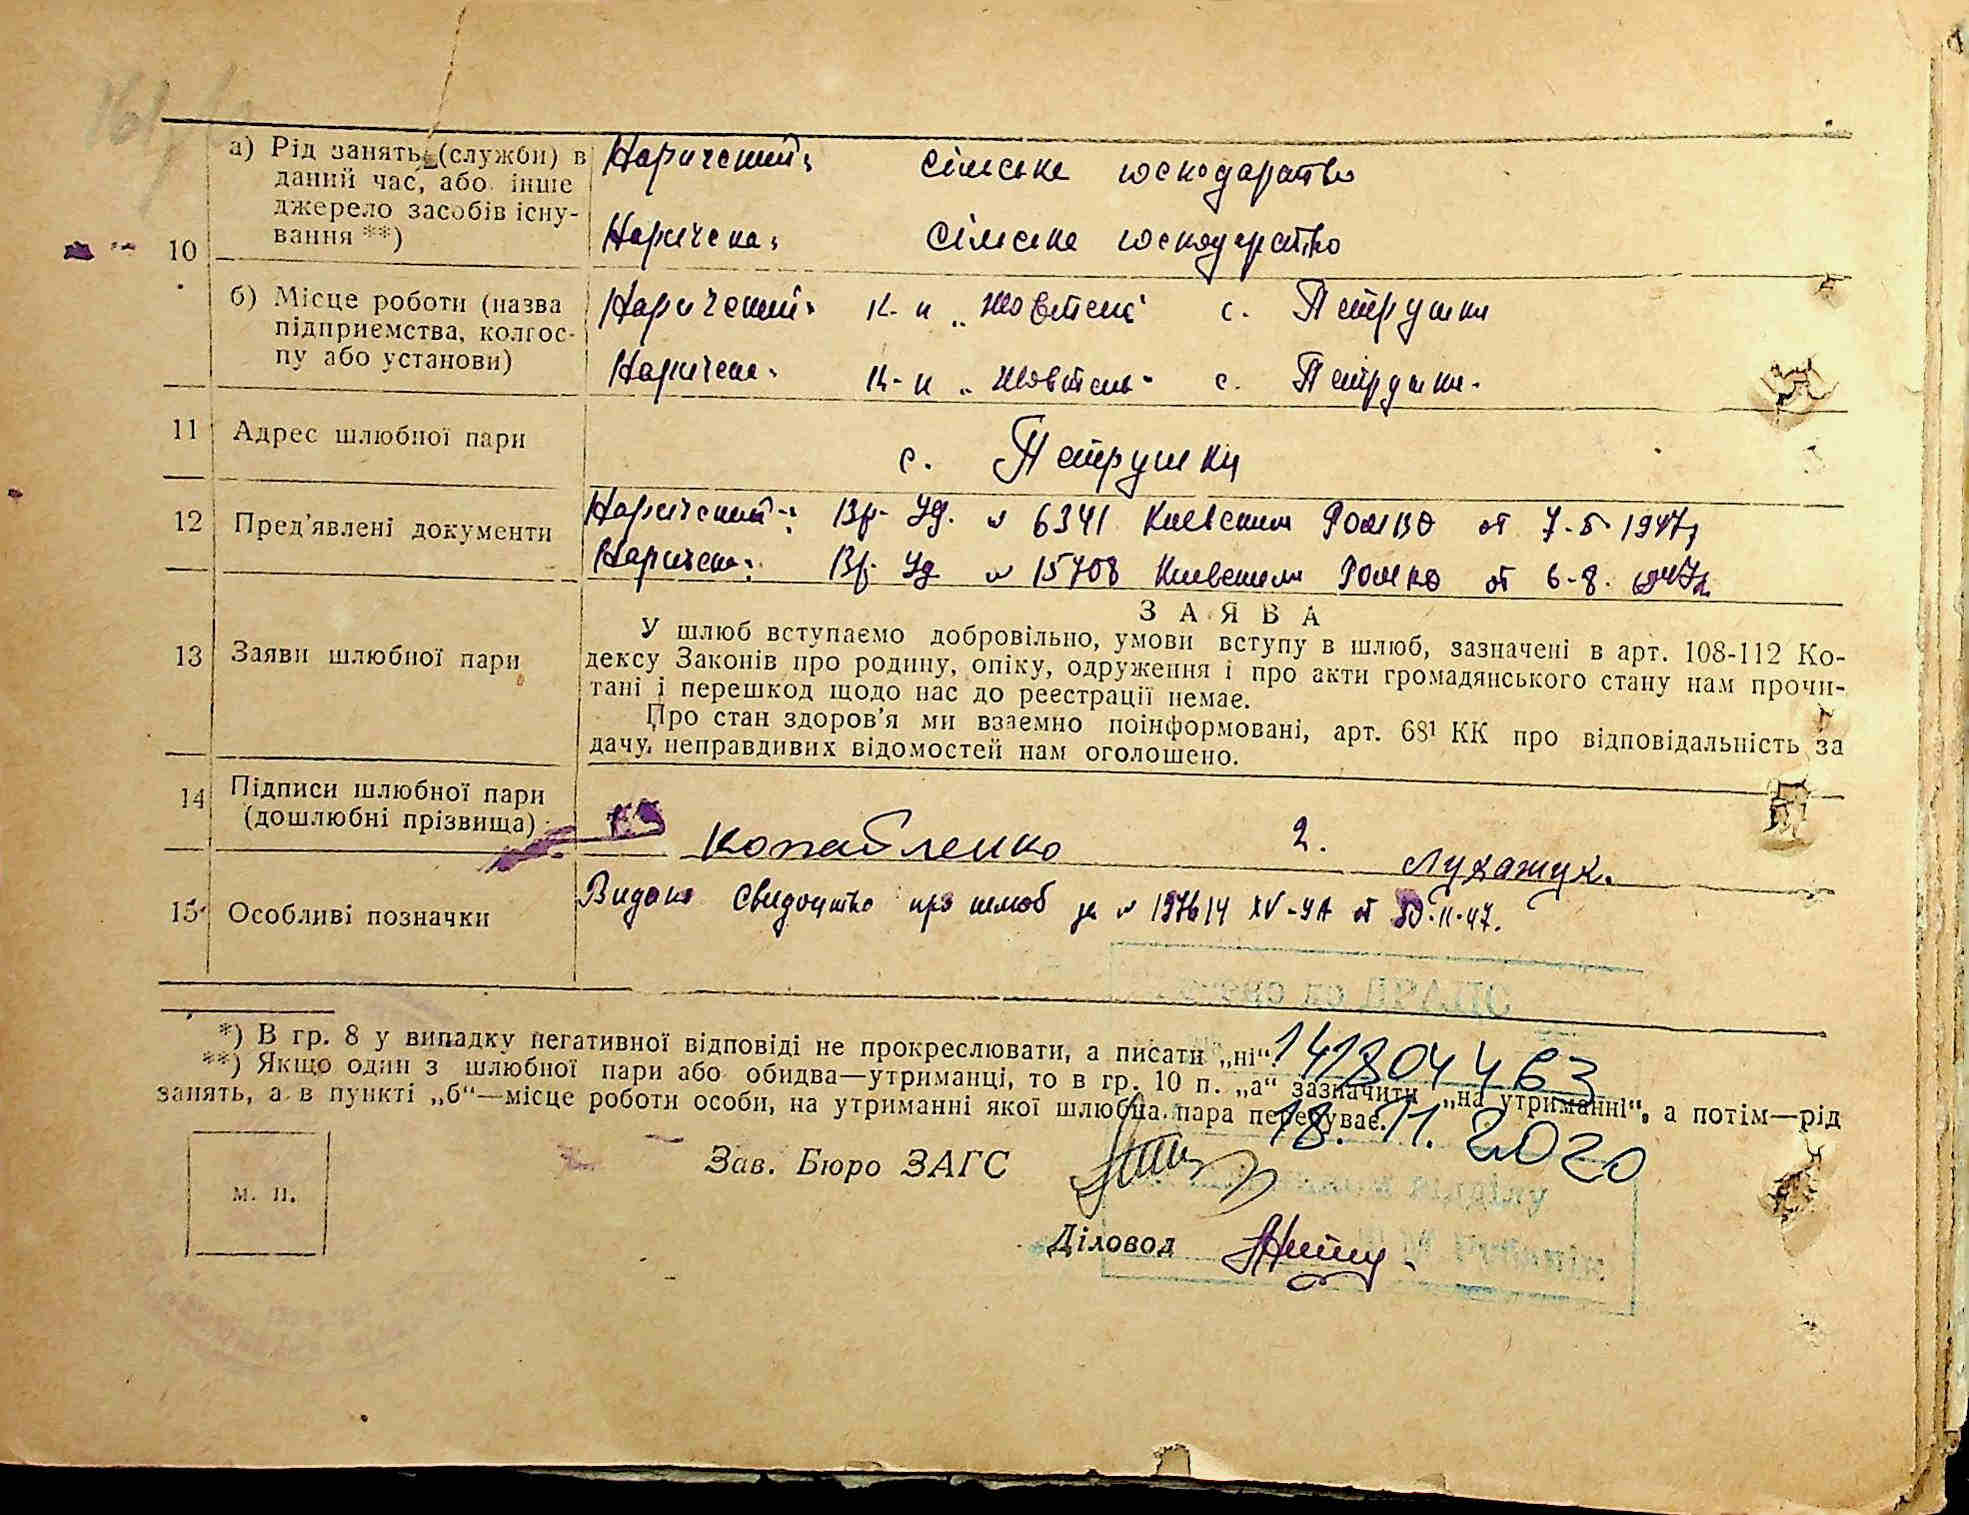 а) Рід занять (служби) в
даний час, або інше
джерело засобів існу-
вання **)
Наречений: сільське господарство
Наречена: сільське господарство
10
б) Місце роботи (назва
підприємства, колгос-
пу або установи)
Наречений: к-п „Жовтень" с. Петрушки
Наречена: к-п „Жовтень" с. Петрушки.
11 Адрес шлюбної пари
с. Петрушки
12 Пред'явлені документи
Наречений: Вр. Уд. № 6341 Киевским РОМВД от 7-5-1947г
Наречена: Вр. Уд № 15708 Киевским от 6-8. 1947г.
13 Заяви шлюбної пари
ЗАЯВА
У шлюб вступаємо добровільно, умови вступу в шлюб, зазначені в арт. 108-112 Ко-
дексу Законів про родину, опіку, одруження і про акти громадянського стану нам прочи-
тані і перешкод щодо нас до реєстрації немає.
Про стан здоров'я ми взаємно поінформовані, арт. 68¹ КК про відповідальність за
дачу неправдивих відомостей нам оголошено.
14 Підписи шлюбної пари
(дошлюбні прізвища)
2.
15 Особливі позначки
Видано свидоцтво про шлюб за № 197614 XV-УА от 30-11-47.
*) В гр. 8 у випадку негативної відповіді не прокреслювати, а писати „ні".
**) Якщо один з шлюбної пари або обидва—утриманці, то в гр. 10 п. „а" зазначити „на утриманні", а потім—рід
занять, а в пункті „б"—місце роботи особи, на утриманні якої шлюбна пара перебуває.
141804463
18.11.2020
м. п.
Зав. Бюро ЗАГС
Діловод